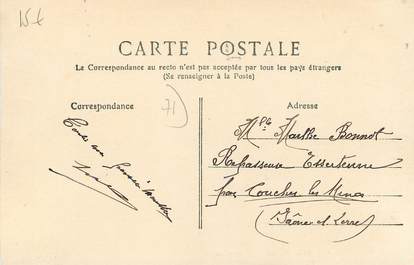 15€
CARTE POSTALE
Le Correspondance au recto n'est pas acceptée par tous les pays étrangers
(Se renseigner à la Poste)
Correspondance
71
Adresse
Mlle Marthe Bonnot
Repasseuse Essertenne
par Couches les Mines
(Saône et Loire)